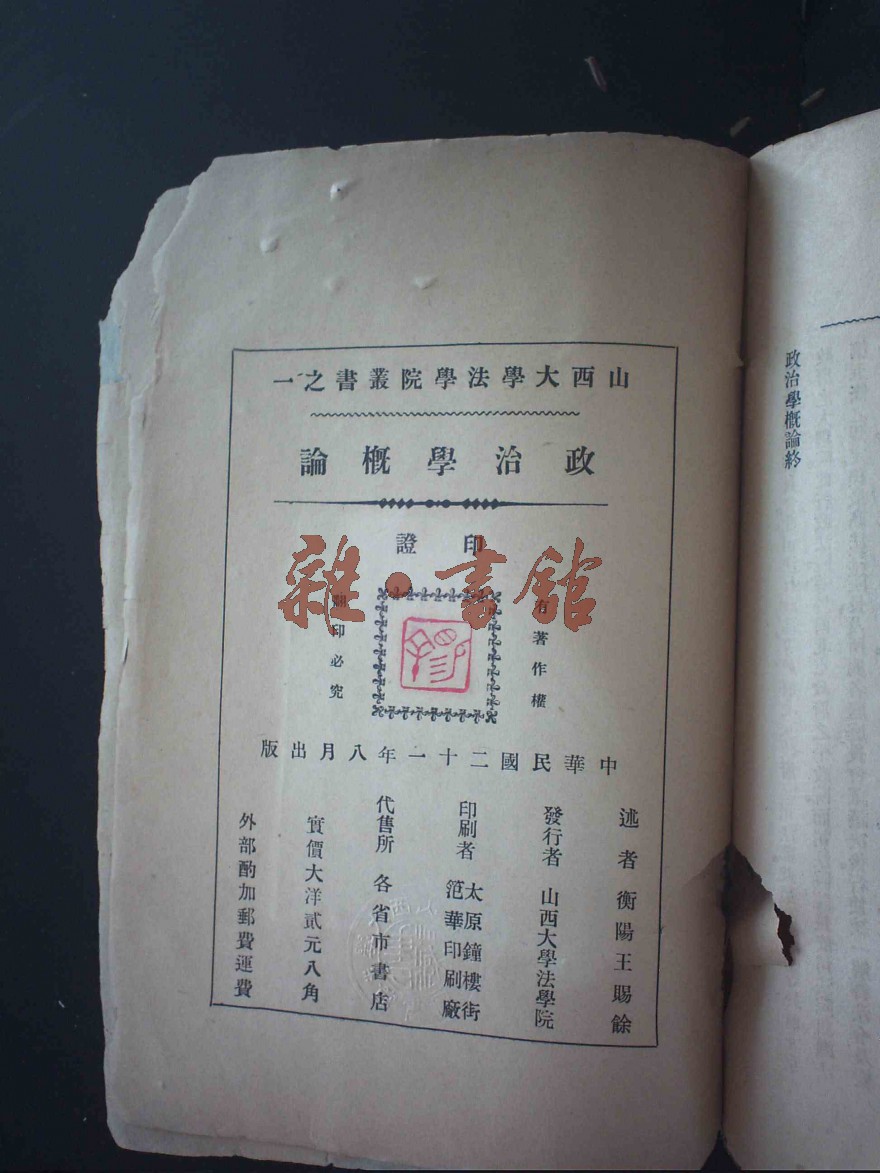 政治學概論終
山西大學法學院叢書之一
政治學概論
印證
有著作權
翻印必究
中華民國二十一年八月出版
述者 衡陽王賜餘
發行者 山西大學法學院
印刷者 太原鐘樓街
范華印刷廠
代售所 各省市書店
實價大洋貳元八角
外部酌加郵費運費
雜·書館